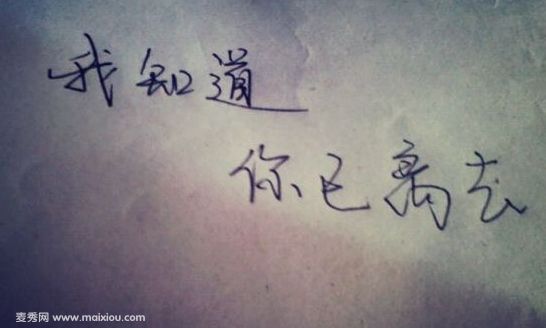 我知道
你已离去
麦秀网 www.maixiou.com